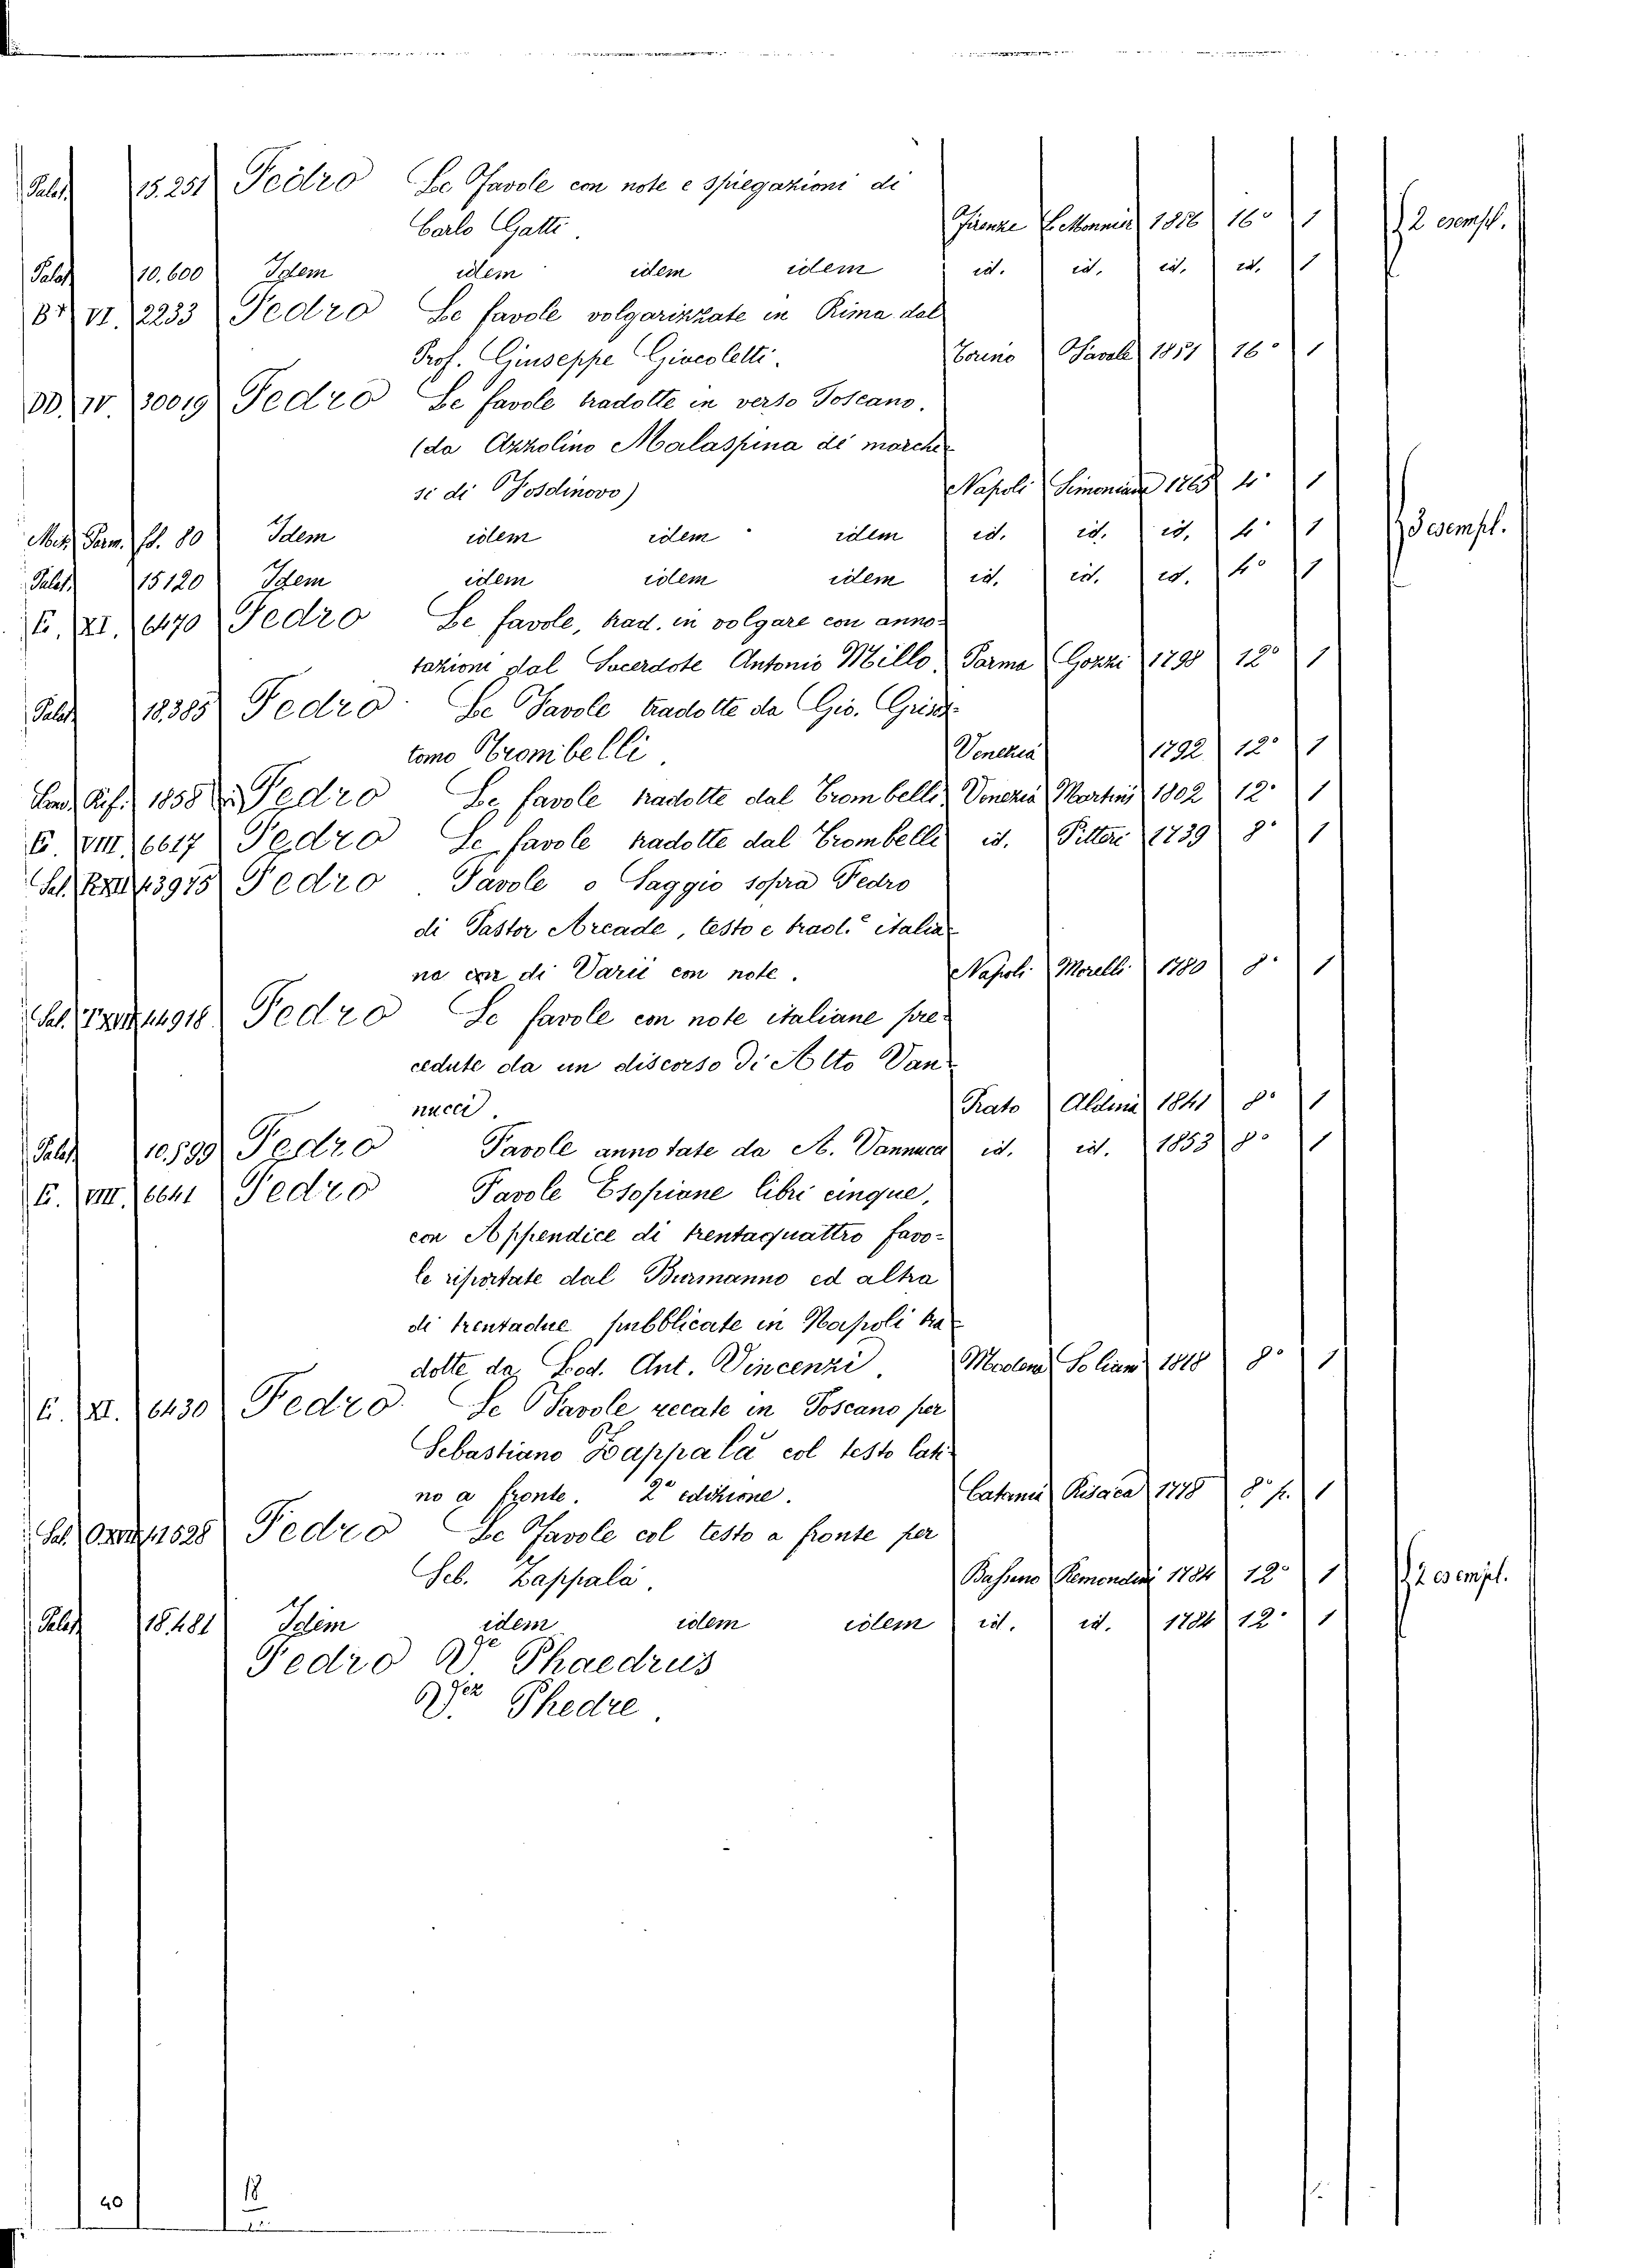 Palat. 15.251 Fedro Le Favole con note e spiegazioni di
Carlo Gatti. Firenze Le Monnier 16° 1 2 esempl.
Palat. 10.600 Idem idem idem idem id. id. id. id. 1
VI. 2233 Fedro Le favole volgarizzate in Rima dal
Prof. Giuseppe Giacoletti. Torino Paravia 1851 16° 1
DD. IV. 30019 Fedro Le favole tradotte in verso Toscano.
(da Azzolino Malaspina de' marche-
si di Fosdinovo) Napoli Simoniana 1765 4° 1
Mez. Parm. fd. 80 Idem idem idem idem id. id. id. 4° 1 3 esempl.
Palat. 15120 Idem idem idem idem id. id. id. 4° 1
E. XI. 6470 Fedro Le favole, trad. in volgare con anno-
tazioni dal Sacerdote Antonio Millo. Parma Gozzi 1798 12° 1
Palat. 18.385 Fedro Le Favole tradotte da Gio. Grisos-
tomo Trombelli. Venezia 1792 12° 1
1858 Fedro Le favole tradotte dal Trombelli. Venezia Martini 1802 12° 1
E. VIII. 6617 Fedro Le favole tradotte dal Trombelli id. Pitteri 1739 8° 1
Sal. 43975 Fedro Favole o Saggio sopra Fedro
di Pastor Arcade, testo e trad.e italia-
na di Varii con note. Napoli Morelli 1780 8° 1
Sal. 44918 Fedro Le favole con note italiane pre-
cedute da un discorso di Atto Van-
nucci. Prato Aldina 1841 8° 1
Palat. 10.599 Fedro Favole annotate da A. Vannucci id. id. 1853 8° 1
E. VIII. 6641 Fedro Favole Esopiane libri cinque,
con Appendice di trentaquattro favo-
le riportate dal Burmanno ed altra
di trentadue pubblicate in Napoli tra-
dotte da Lod. Ant. Vincenzi. Modena Soliani 1818 8° 1
E. XI. 6430 Fedro Le Favole recate in Toscano per
Sebastiano Zappalà col testo lati-
no a fronte. 2a edizione. Catania 1778 8° p. 1
Sal. 41528 Fedro Le Favole col testo a fronte per
Seb. Zappalà. Bassano Remondini 1784 12° 1 2 esempl.
Palat. 18.481 Idem idem idem idem id. id. 1784 12° 1
Fedro Ve Phaedrus
Ver Phedre.
40 18